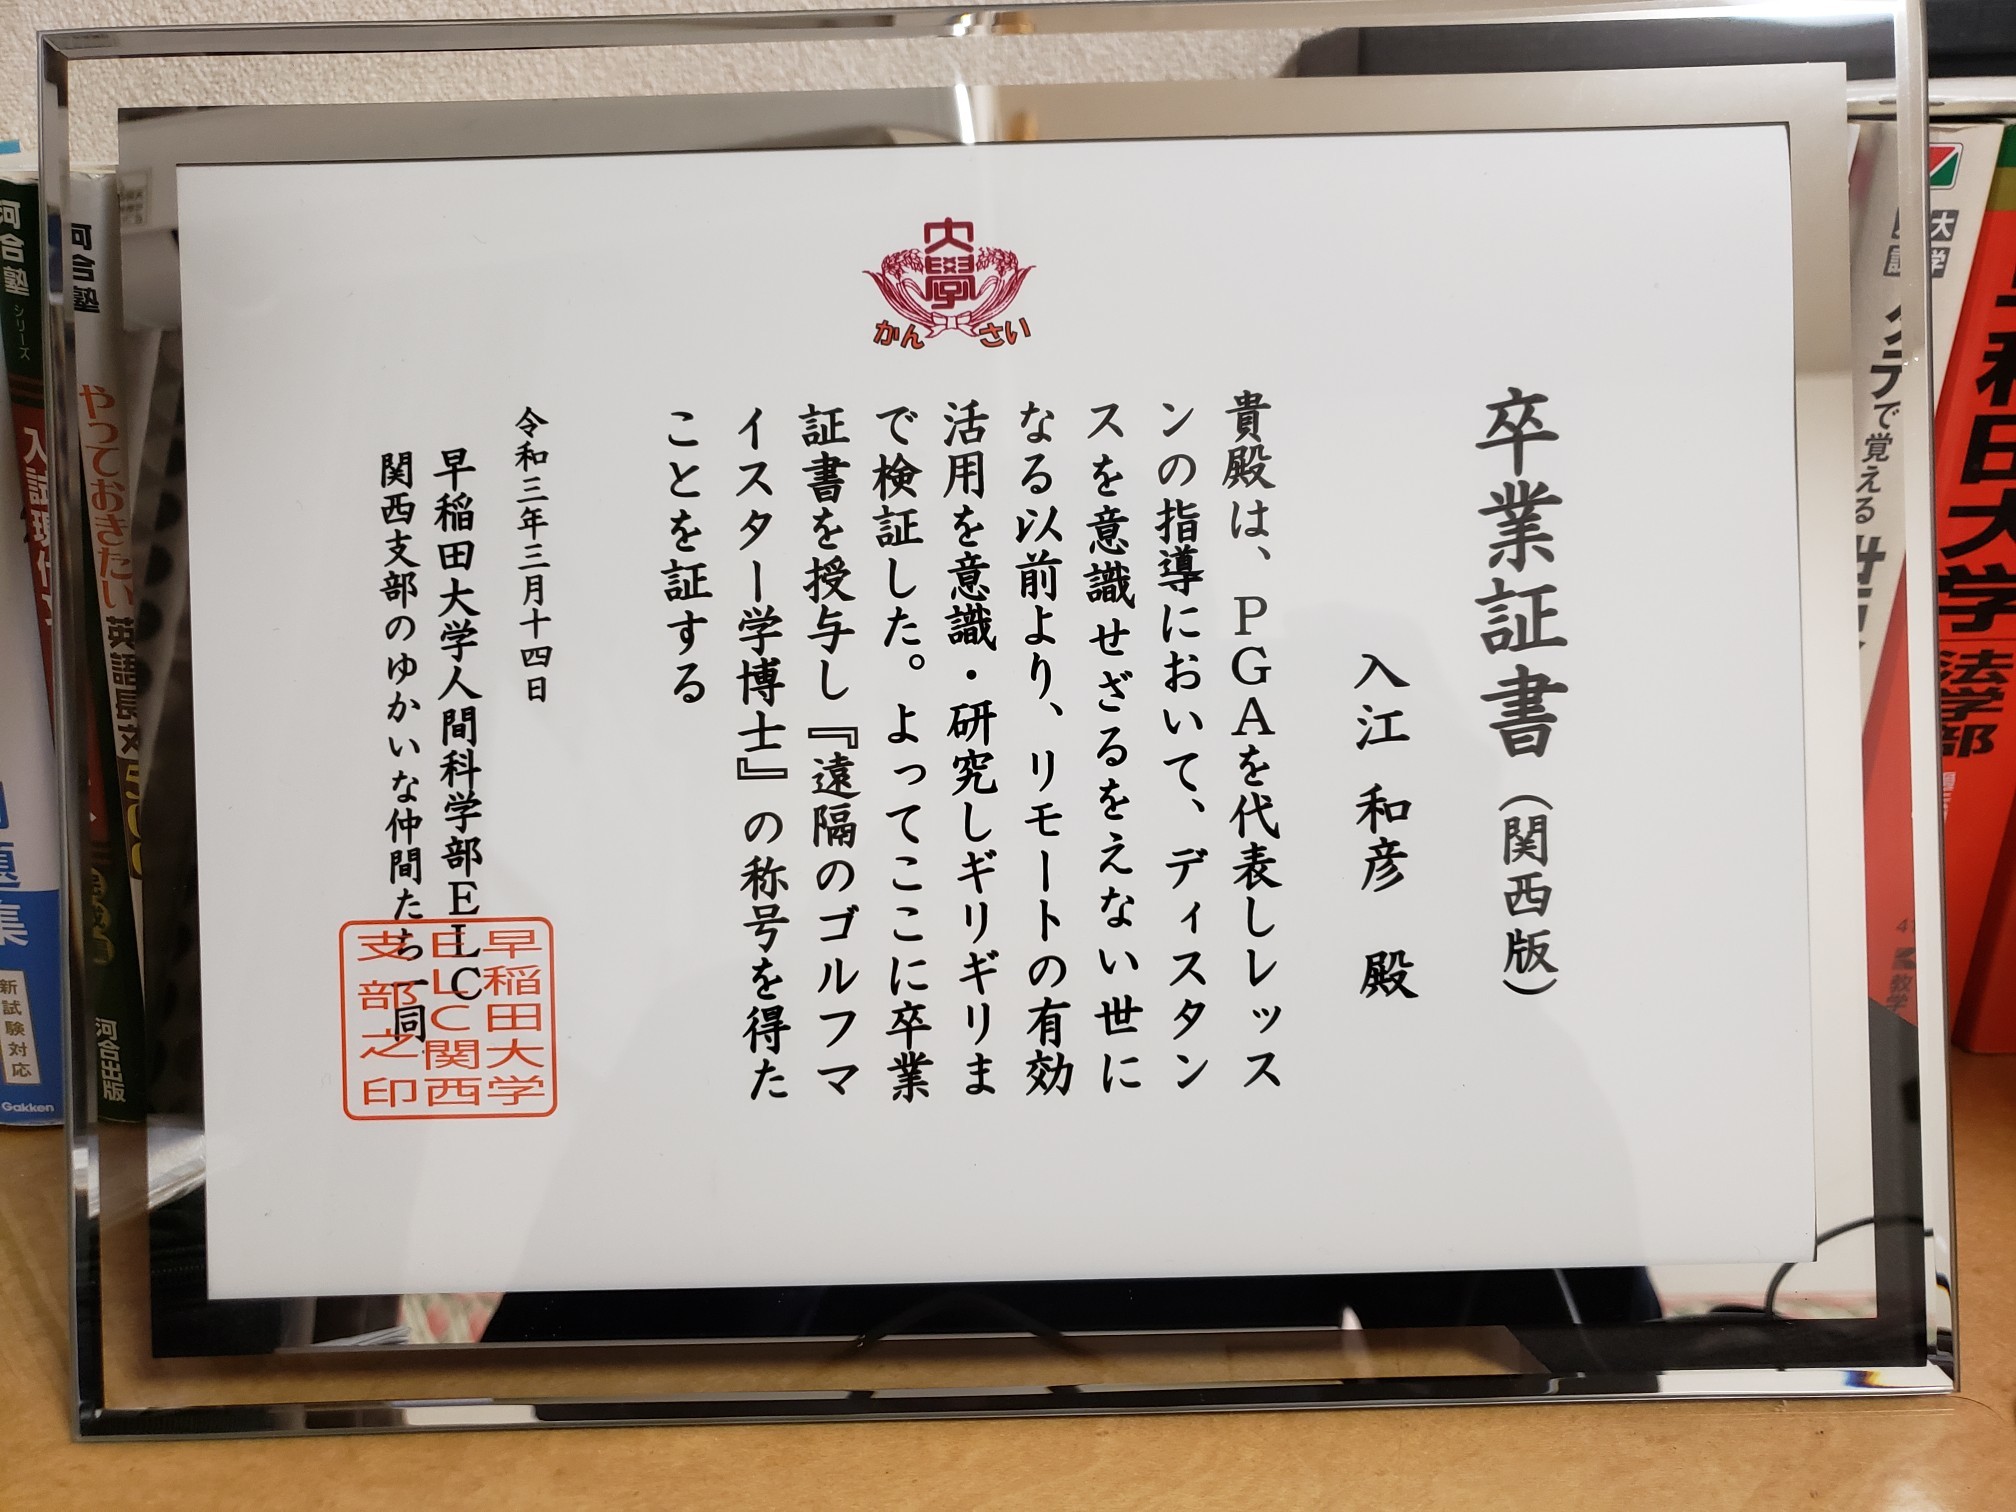 大學
かんさい
卒業証書（関西版）
入江 和彦 殿
貴殿は、ＰＧＡを代表しレッス
ンの指導において、ディスタン
スを意識せざるをえない世に
なる以前より、リモートの有効
活用を意識・研究しギリギリま
で検証した。よってここに卒業
証書を授与し『遠隔のゴルフマ
イスター学博士』の称号を得た
ことを証する
令和三年三月十四日
早稲田大学人間科学部ＥＬＣ
関西支部のゆかいな仲間たち一同
早稲田大学
ELC関西
支部之印
河合塾
シリーズ
入試現代文
題集
新試験対応
Gakken
河合塾
やっておきたい英語長文500
河合出版
大学
タテで覚える
早稲田大学
法学部
教学